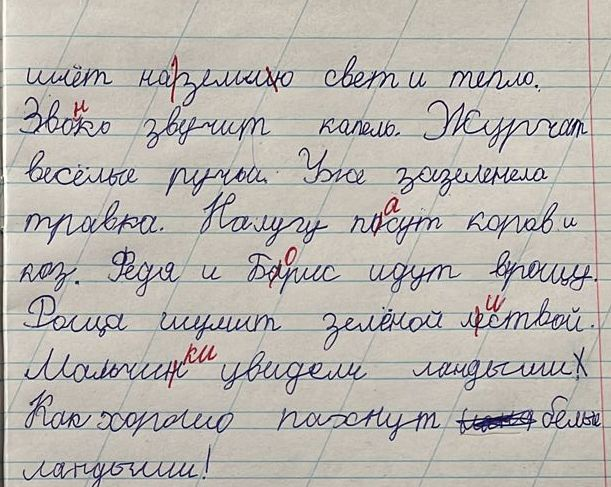 шлёт на|землию свет и тепло.
Звонко звучит капель. Журчат
весёлые ручьи. Уже зазеленела
травка. Налугу пасут коров и
коз. Федя и Борис идут врощу.
Роща шумит зелёной листвой.
Мальчинки увидели ландыши!
Как хорошо пахнут белые
ландыши!